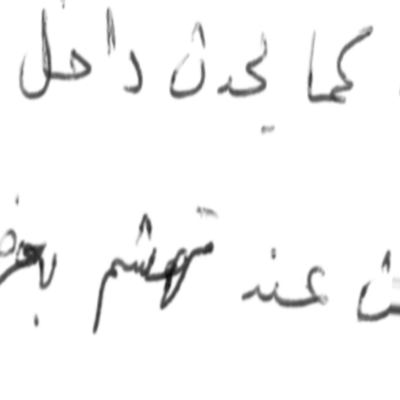 كما يحدث داخل
عند تهشم بعض